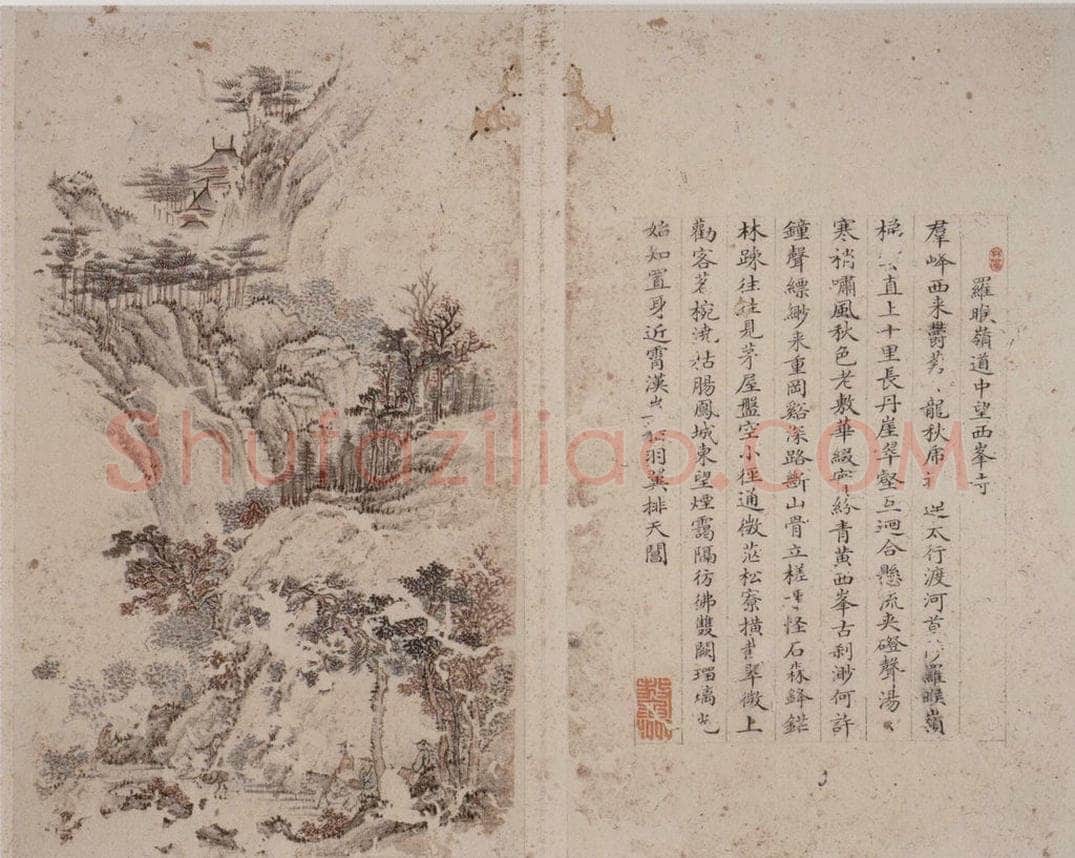 羅睺嶺道中望西峯寺
羣峰西来鬱龍秋太行渡河羅睺嶺
直上十里長丹崖翠壑互迴合懸流夾磴聲湯
寒梢嘯風秋色老敷華綴實紛青黃西峯古刹渺何許
鐘聲縹緲来重岡谿深路斷山骨立槎怪石森鋒鋩
林踈往往見茅屋盤空小徑通微茫松寮橫翠微上
勸客茗椀澆枯腸鳳城東望煙靄隔彷彿雙闕瑠璃光
始知置身近霄漢羽翼排天閶
Shufaziliao.COM